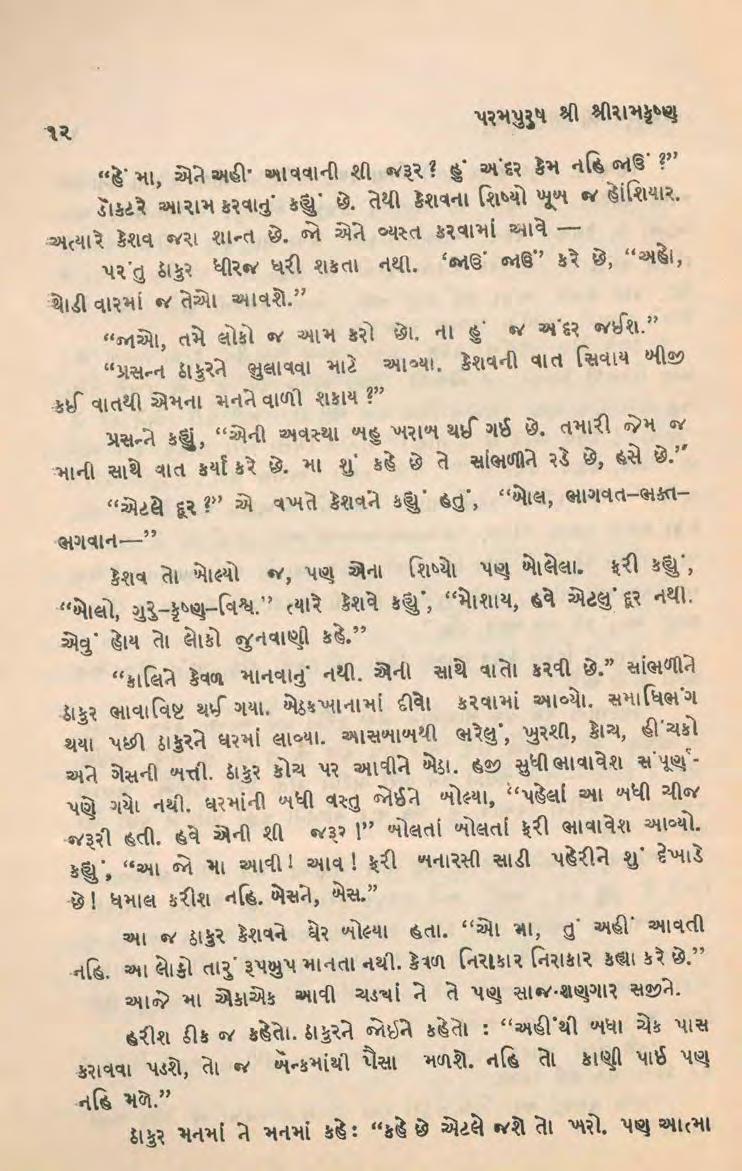 ૧૨
પરમપુરુષ શ્રી શ્રીરામકૃષ્ણ
“હેં મા, એને અહીં આવવાની શી જરૂર? હું અંદર કેમ નહિ જાઉં ?”
ડૉકટરે આરામ કરવાનું કહ્યું છે. તેથી કેશવના શિષ્યો ખૂબ જ હોંશિયાર.
અત્યારે કેશવ જરા શાન્ત છે. જો એને વ્યસ્ત કરવામાં આવે —
પરંતુ ઠાકુર ધીરજ ધરી શકતા નથી. ‘જાઉં જાઉં’ કરે છે, “અહો,
થોડી વારમાં જ તેઓ આવશે.”
“જાઓ, તમે લોકો જ આમ કરો છો. ના હું જ અંદર જઈશ.”
“પ્રસન્ન ઠાકુરને ભુલાવવા માટે આવ્યા. કેશવની વાત સિવાય બીજી
કઈ વાતથી એમના મનને વાળી શકાય ?”
પ્રસન્ને કહ્યું, “એની અવસ્થા બહુ ખરાબ થઈ ગઈ છે. તમારી જેમ જ
માની સાથે વાત કર્યા કરે છે. મા શું કહે છે તે સાંભળીને રડે છે, હસે છે.”
“એટલે દૂર ?” એ વખતે કેશવને કહ્યું હતું, “બોલ, ભાગવત–ભક્ત–
ભગવાન—”
કેશવ તો બોલ્યો જ, પણ એના શિષ્યો પણ બોલેલા. ફરી કહ્યું,
“બોલો, ગુરુ–કૃષ્ણ–વિશ્વ.” ત્યારે કેશવે કહ્યું, “મોશાય, હવે એટલું દૂર નથી.
એવું હોય તો લોકો જુનવાણી કહે.”
“કાલિને કેવળ માનવાનું નથી. એની સાથે વાતો કરવી છે.” સાંભળીને
ઠાકુર ભાવાવિષ્ટ થઈ ગયા. બેઠકખાનામાં દીવો કરવામાં આવ્યો. સમાધિભંગ
થયા પછી ઠાકુરને ઘરમાં લાવ્યા. આસબાબથી ભરેલું, ખુરશી, કોચ, હીંચકો
અને ગેસની બત્તી. ઠાકુર કોચ પર આવીને બેઠા. હજી સુધી ભાવાવેશ સંપૂર્ણ-
પણે ગયો નથી. ઘરમાંની બધી વસ્તુ જોઈને બોલ્યા, “પહેલાં આ બધી ચીજ
જરૂરી હતી. હવે એની શી જરૂર !” બોલતાં બોલતાં ફરી ભાવાવેશ આવ્યો.
કહ્યું, “આ જો મા આવી! આવ! ફરી બનારસી સાડી પહેરીને શું દેખાડે
છે! ધમાલ કરીશ નહિ. બેસને, બેસ.”
આ જ ઠાકુર કેશવને ઘેર બોલ્યા હતા. “ઓ મા, તું અહીં આવતી
નહિ. આ લોકો તારું રૂપબુપ માનતા નથી. કેવળ નિરાકાર નિરાકાર કહ્યા કરે છે.”
આજે મા એકાએક આવી ચડ્યાં ને તે પણ સાજ-શણગાર સજીને.
હરીશ ઠીક જ કહેતો. ઠાકુરને જોઇને કહેતો : “અહીંથી બધા ચેક પાસ
કરાવવા પડશે, તો જ બૅન્કમાંથી પૈસા મળશે. નહિ તો કાણી પાઈ પણ
નહિ મળે.”
ઠાકુર મનમાં ને મનમાં કહે: “કહે છે એટલે જશે તો ખરો. પણ આત્મા